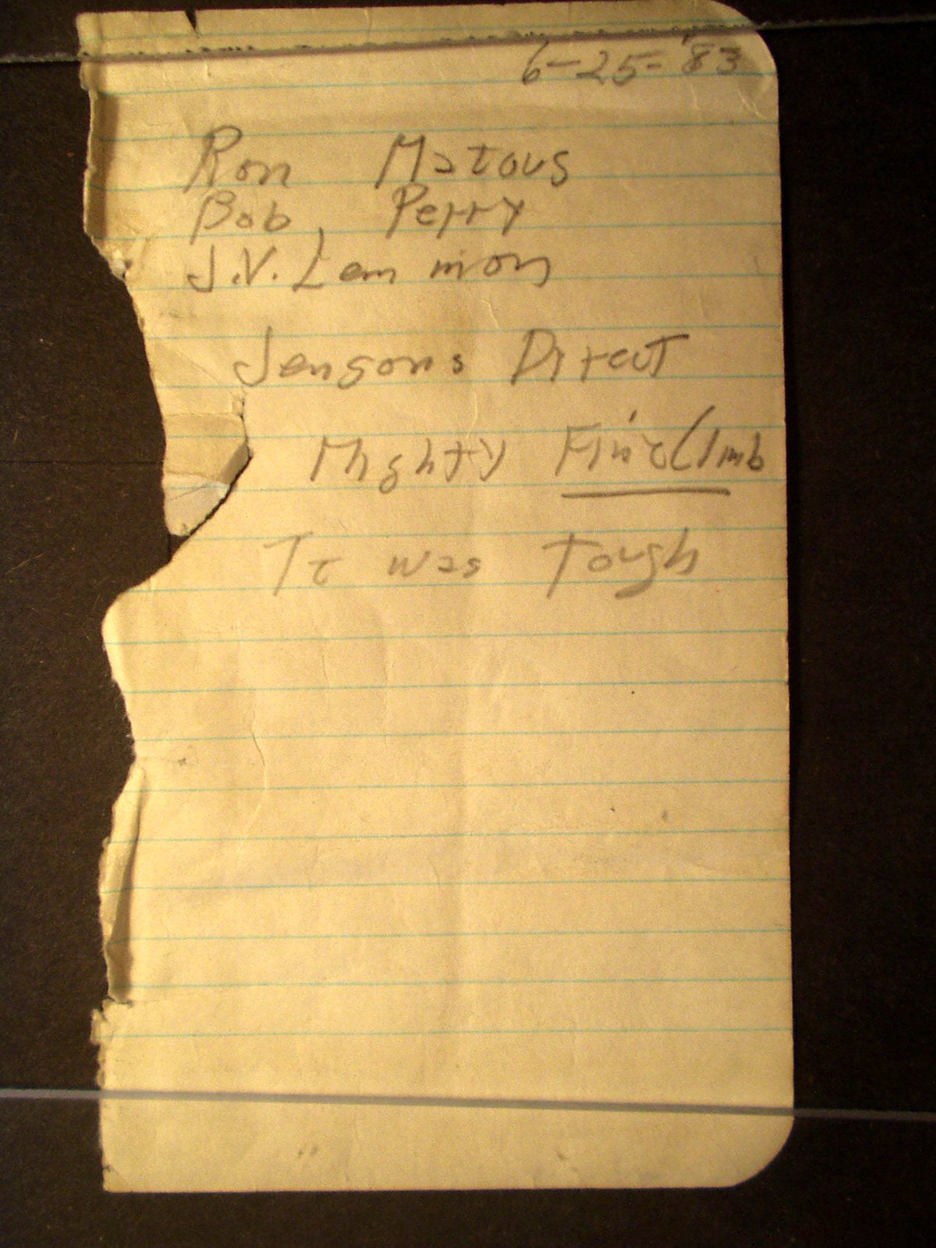 6-25-'83
Ron Matous
Bob Perry
J.V. Lemmon
Jensons Direct
Mighty Fine Climb
It was Tough